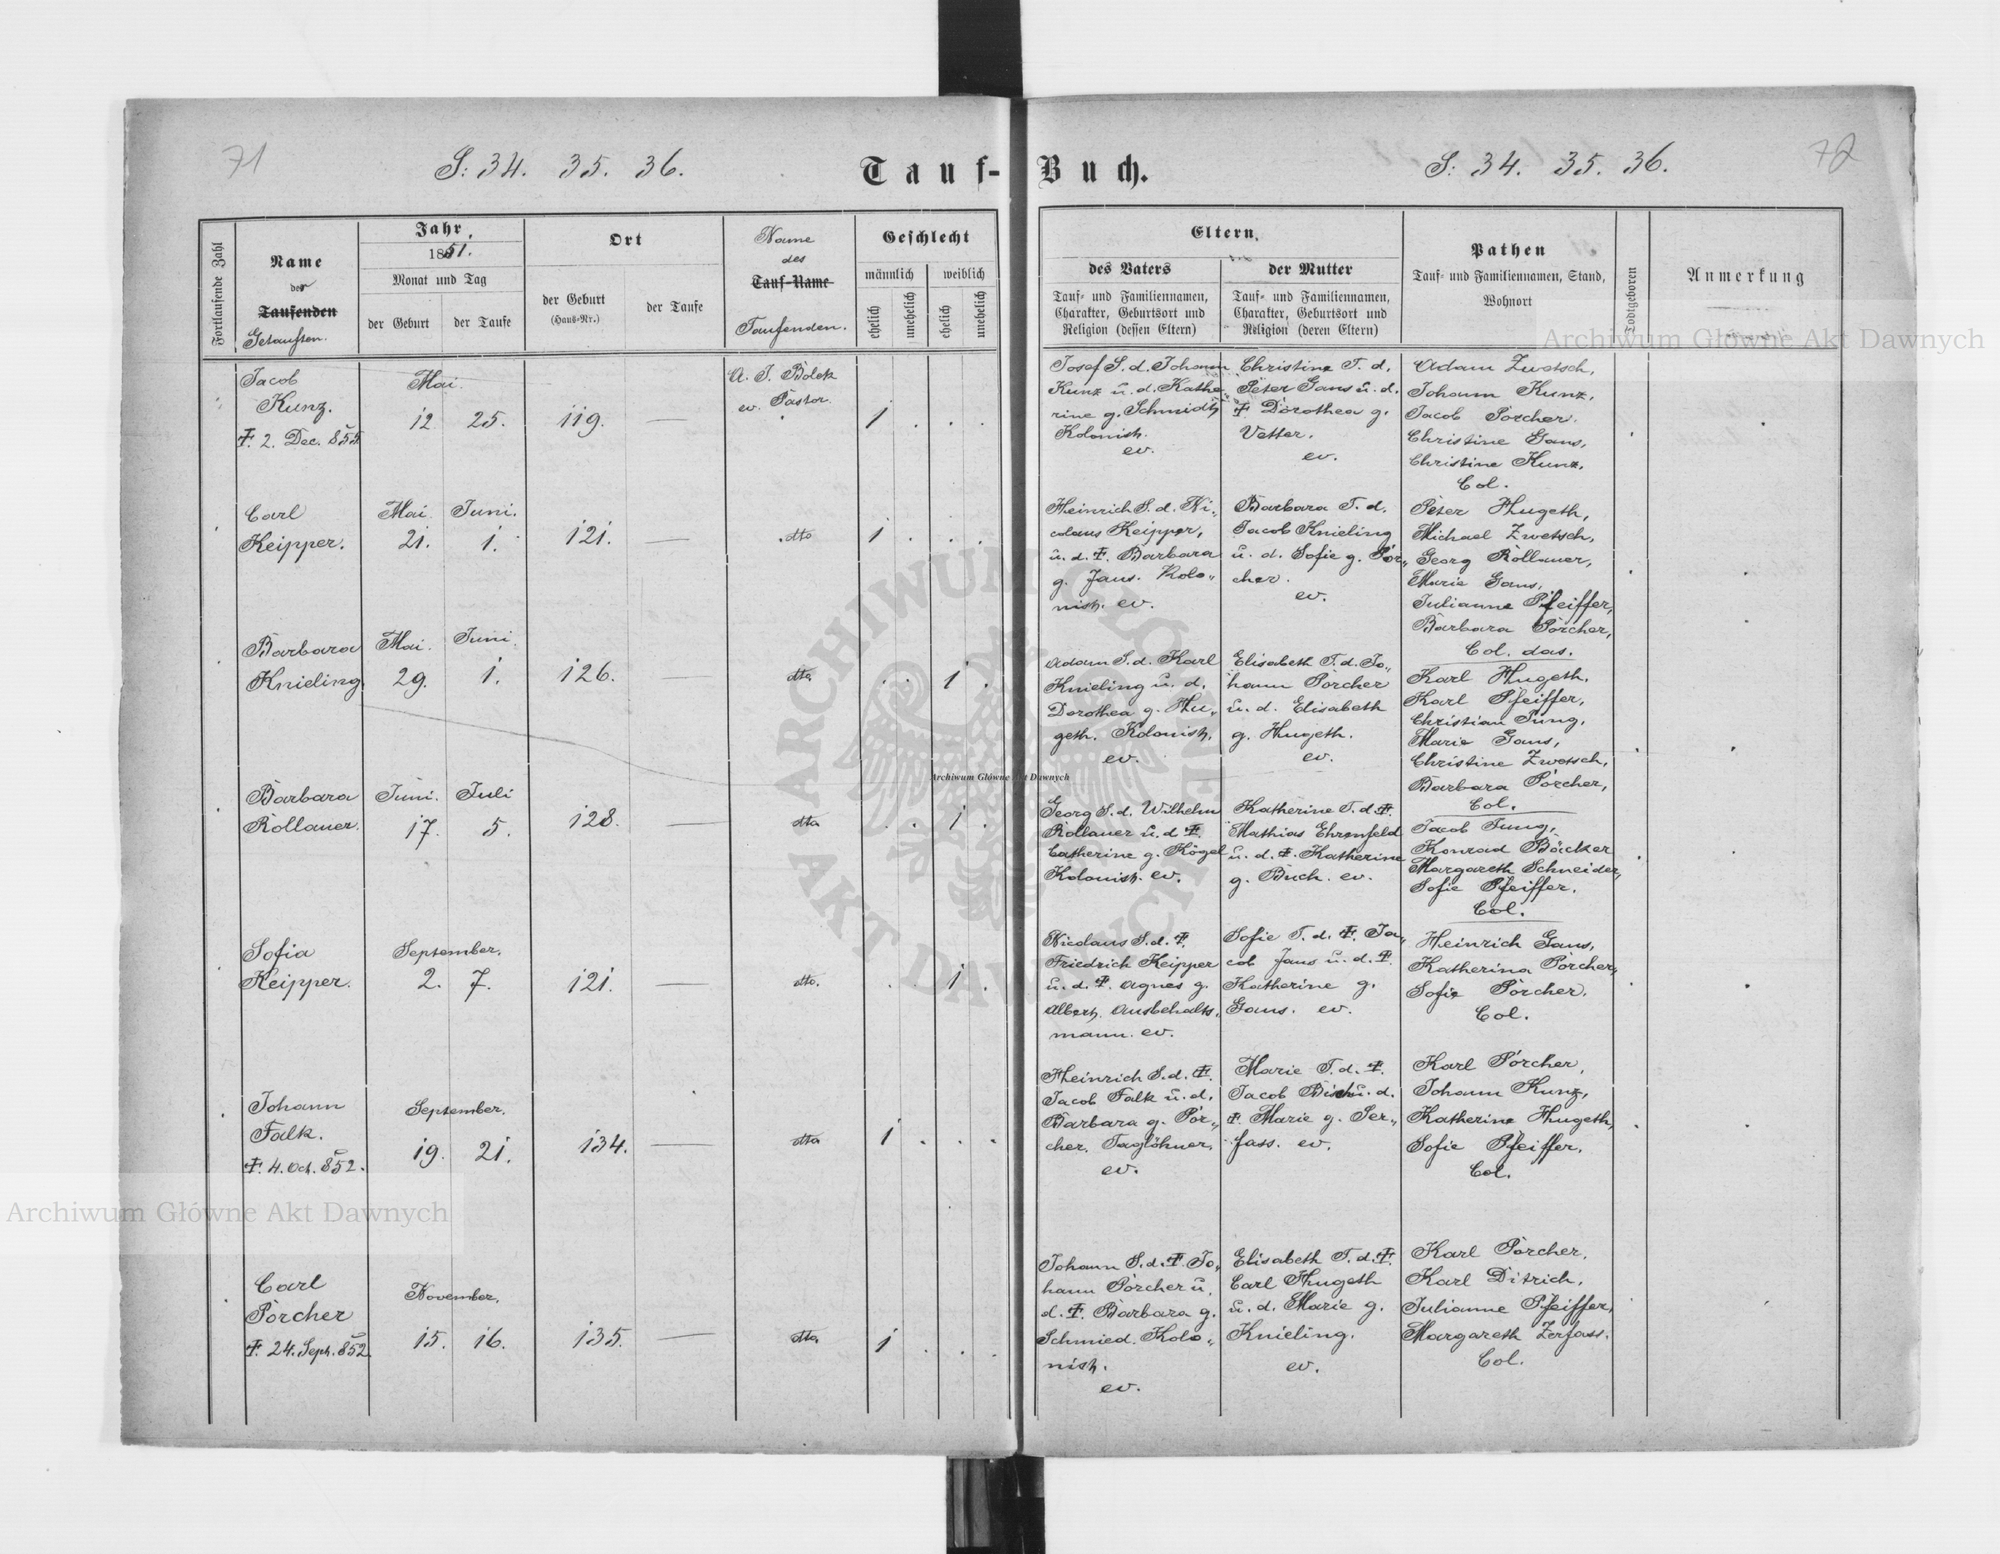 71
S: 34. 35. 36.
Tauf-
Buch.
S: 34. 35. 36.
72
Fortlaufende Zahl
Name
der
Taufenden
Getauften.
Jahr
1851.
Monat und Tag
der Geburt
der Taufe
Ort
der Geburt
(Haus-Nr.)
der Taufe
Name
des
Tauf-Name
Taufenden.
Geschlecht
männlich
weiblich
ehelich
unehelich
ehelich
unehelich
Eltern
des Vaters
Tauf- und Familiennamen,
Charakter, Geburtsort und
Religion (dessen Eltern)
der Mutter
Tauf- und Familiennamen,
Charakter, Geburtsort und
Religion (deren Eltern)
Pathen
Tauf- und Familiennamen, Stand,
Wohnort
Todtgeboren
Anmerkung
Jacob
Kunz.
Ŧ. 2. Dec. 855.
Mai.
12 25.
119.
—
A. J. Bolek
ev. Pastor
1
Josef S. d. Johann
Kunz u. d. Kathe
rine g. Schmidt,
Kolonist.
ev.
Christine T. d.
Peter Gans u. d.
Ŧ Dorothea g.
Vetter.
ev.
Adam Zwetsch,
Johann Kunz,
Jacob Porcher.
Christine Gans,
Christine Kunz,
Col.
Carl
Keipper.
Mai. Juni.
21. 1.
121.
—
dto
1
Heinrich S. d. Ni„
colaus Keipper,
u. d. Ŧ. Barbara
g. Jans. Kolo„
nist. ev.
Barbara T. d.
Jacob Knieling
u. d. Sofie g. Por„
cher.
ev.
Peter Hugeth,
Michael Zwetsch,
Georg Rollauer,
Marie Gans,
Julianne Pfeiffer,
Barbara Porcher,
Col. das.
Barbara
Knieling
Mai. Juni.
29. 1.
126.
—
dto
1
Adam S. d. Karl
Knieling u. d.
Dorothea g. Hu„
geth. Kolonist.
ev.
Elisabeth T. d. Jo„
hann Porcher
u. d. Elisabeth
g. Hugeth.
ev.
Karl Hugeth.
Karl Pfeiffer,
Christian Jung,
Marie Gans,
Christine Zwetsch,
Barbara Porcher,
Col.
Barbara
Rollauer.
Juni. Juli
17. 5.
128.
—
dto
1
Georg S. d. Wilhelm
Rollauer u. d. Ŧ.
Catherine g. Kögel
Kolonist. ev.
Katherine T. d. Ŧ.
Mathias Ehrenfeld
u. d. Ŧ. Katherine
g. Buch. ev.
Jacob Jung,
Konrad Bäcker
Margareth Schneider,
Sofie Pfeiffer.
Col.
Sofia
Keipper.
September.
2. 7.
121.
—
dto.
1
Nicolaus S. d. Ŧ.
Friedrich Keipper
u. d. Ŧ. Agnes g.
Albert. Ausbehalts„
mann. ev.
Sofie T. d. Ŧ. Ja„
cob Jans u. d. Ŧ.
Katherine g.
Gans. ev.
Heinrich Gans,
Katherina Porcher,
Sofie Porcher.
Col.
Johann
Falk.
Ŧ. 4. Oct. 852.
September.
19. 21.
134.
—
dto
1
Heinrich S. d. Ŧ.
Jacob Falk u. d.
Barbara g. Por„
cher. Taglöhner
ev.
Marie T. d. Ŧ.
Jacob u. d.
Ŧ Marie g. Ser„
fass. ev.
Karl Porcher,
Johann Kunz,
Katherine Hugeth,
Sofie Pfeiffer.
Col.
Carl
Porcher
Ŧ. 24. Sept. 852.
November.
15. 16.
135.
—
dto
1
Johann S. d. Ŧ. Jo„
hann Porcher u.
d. Ŧ. Barbara g.
Schmied. Kolo„
nist.
ev.
Elisabeth T. d. Ŧ.
Carl Hugeth
u. d. Marie g.
Knieling.
ev.
Karl Porcher.
Karl Ditrich,
Julianne Pfeiffer,
Margareth Zerfass.
Col.
Archiwum Główne Akt Dawnych
Archiwum Główne Akt Dawnych
Archiwum Główne Akt Dawnych
ARCHIWUM GŁÓWNE
AKT DAWNYCH